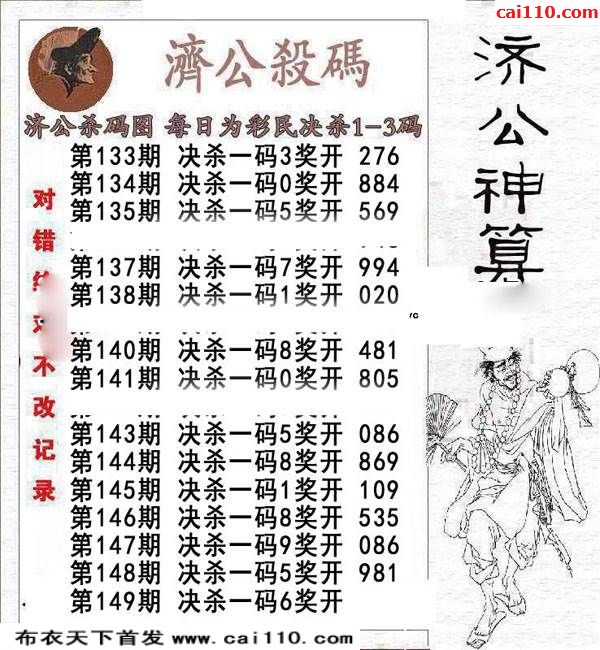 cai110.com
濟公殺碼
济公杀码图 每日为彩民决杀1-3码
第133期 决杀一码3奖开 276
第134期 决杀一码0奖开 884
第135期 决杀一码5奖开 569
第137期 决杀一码7奖开 994
第138期 决杀一码1奖开 020
第140期 决杀一码8奖开 481
第141期 决杀一码0奖开 805
第143期 决杀一码5奖开 086
第144期 决杀一码8奖开 869
第145期 决杀一码1奖开 109
第146期 决杀一码8奖开 535
第147期 决杀一码9奖开 086
第148期 决杀一码5奖开 981
第149期 决杀一码6奖开
对错
不改记录
济公神算
布衣天下首发 www.cai110.com